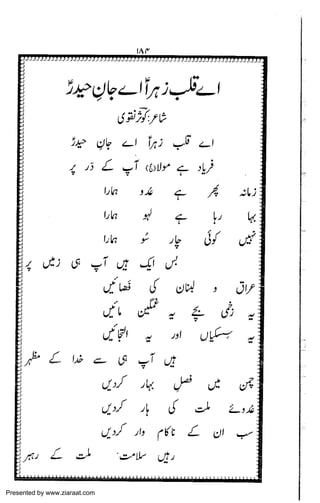 ۱۸۴
اے قلبِ زہراؑ اے جانِ حیدرؑ
شاعر: کوثر نقوی
اے قلبِ زہراؑ اے جانِ حیدرؑ
فریاد ہے مولا(عج) آپ کے دَر پر
زمانہ پھر ہے عدو ہمارا
بہا رہا ہے لہو ہمارا
نہیں کوئی چار سُو ہمارا
بس ایک ہیں آپ ہی زمیں پر
عراق و لبنان کی فضائیں
یہ زخمی بچے یہ غمگین مائیں
یہ سسکیاں اور یہ التجائیں
ہیں آپ ہی سے خدا کے مظہر
چمن میں فصلِ بہار کردیں
عدوئے ملت کی ہار کردیں
سب ان کے ناکام وار کردیں
رہیں سلامت ملت کے رہبر
Presented by www.ziaraat.com